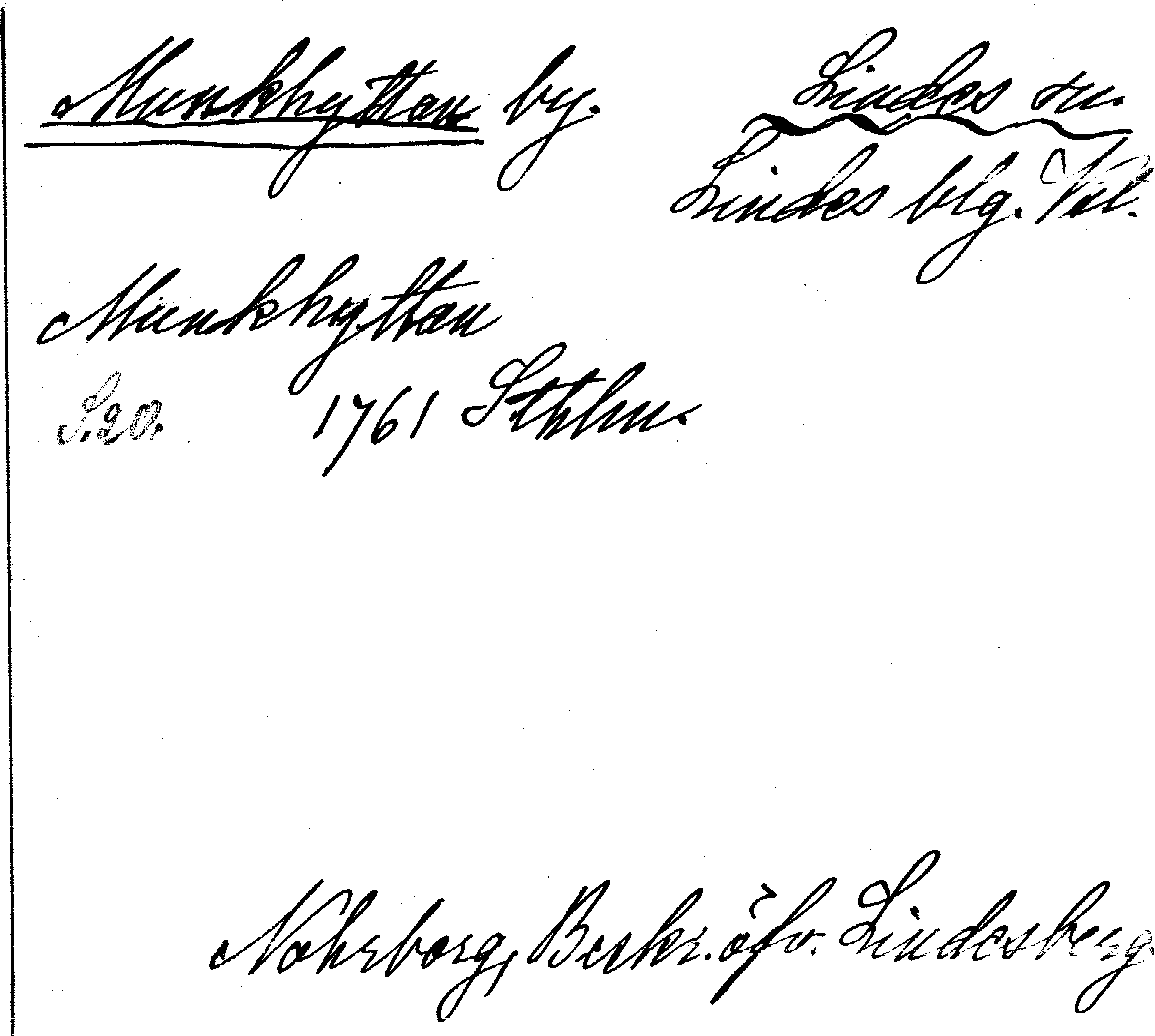 Munkhyttan by. Lindes sn.
Lindes blg. Vstl.
Munkhyttan
S. 20. 1761 Sthlm.
Nohrborg, Beskr. öfv. Lindesberg